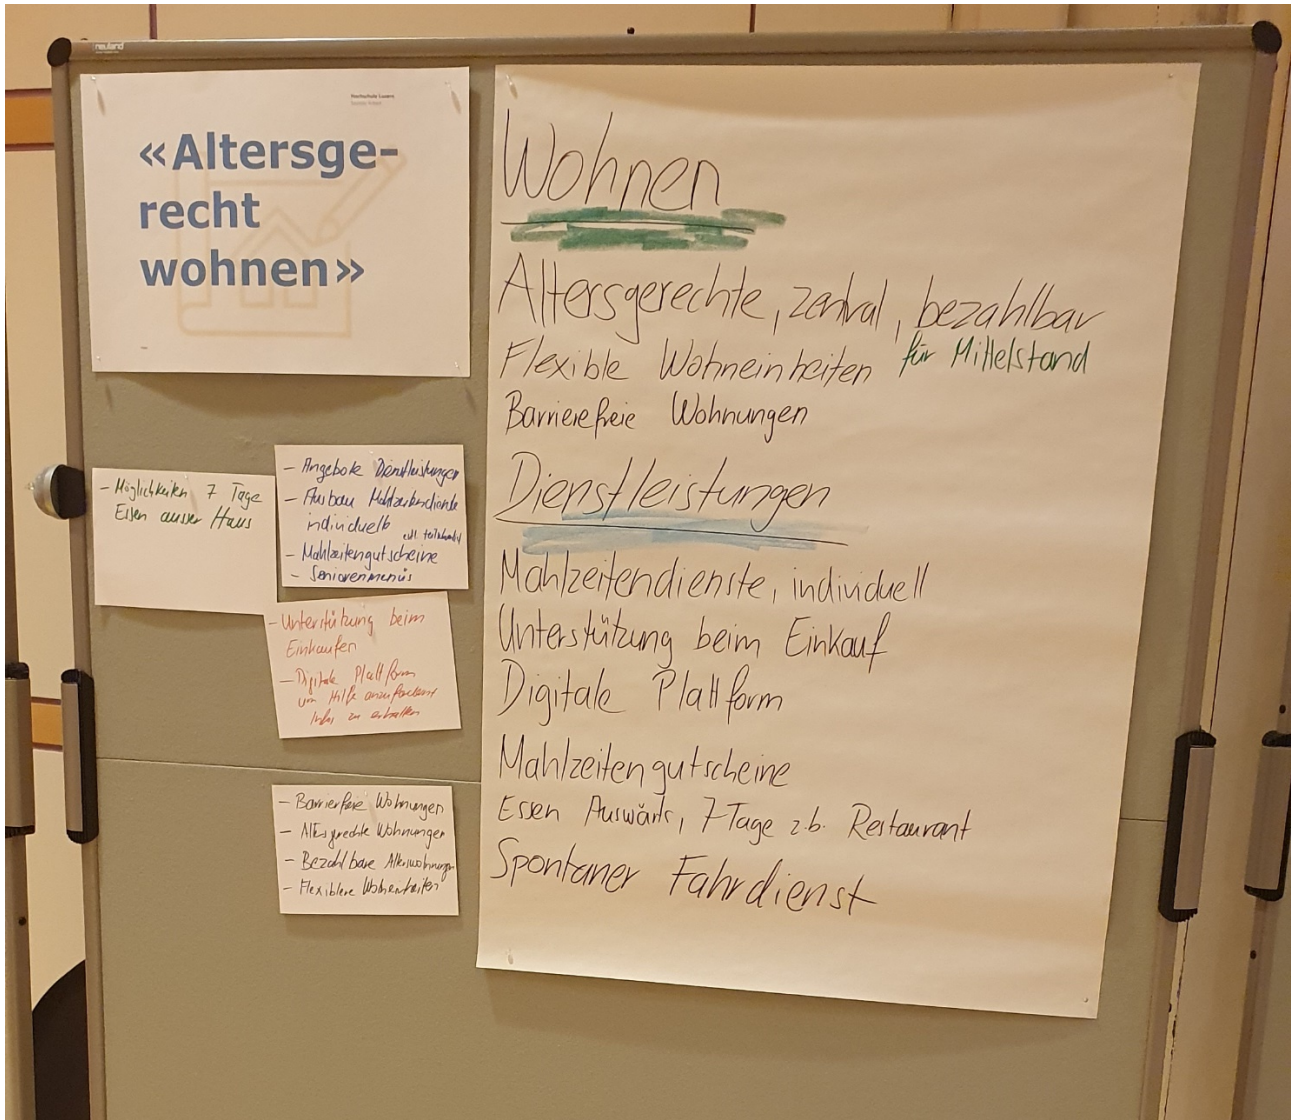 neuland
Hochschule Luzern
Soziale Arbeit
«Altersge-
recht
wohnen»
- Möglichkeiten 7 Tage
Essen ausser Haus
- Angebote Dienstleistungen
- Ausbau Mahlzeitendienste
individuell
- Mahlzeitengutscheine
- Seniorenmenüs
- Unterstützung beim
Einkaufen
- Digitale Plattform
um Hilfe anzufordern
Infos zu erhalten
- Barrierfreie Wohnungen
- Altersgerechte Wohnungen
- Bezahlbare Alterswohnungen
- Flexiblere Wohneinheiten
Wohnen
Altersgerechte, zentral, bezahlbar
für Mittelstand
Flexible Wohneinheiten
Barrierefreie Wohnungen
Dienstleistungen
Mahlzeitendienste, individuell
Unterstützung beim Einkauf
Digitale Plattform
Mahlzeitengutscheine
Essen Auswärts, 7 Tage z.b. Restaurant
Spontaner Fahrdienst